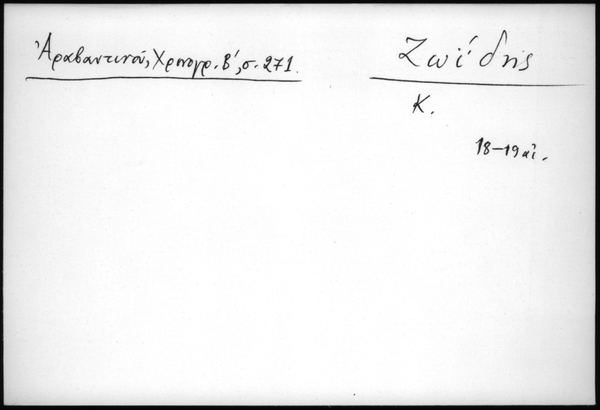 Ἀραβαντινοῦ, Χρονογρ. Β΄, σ. 271.
Ζωΐδης
Κ.
18–19 αἰ.